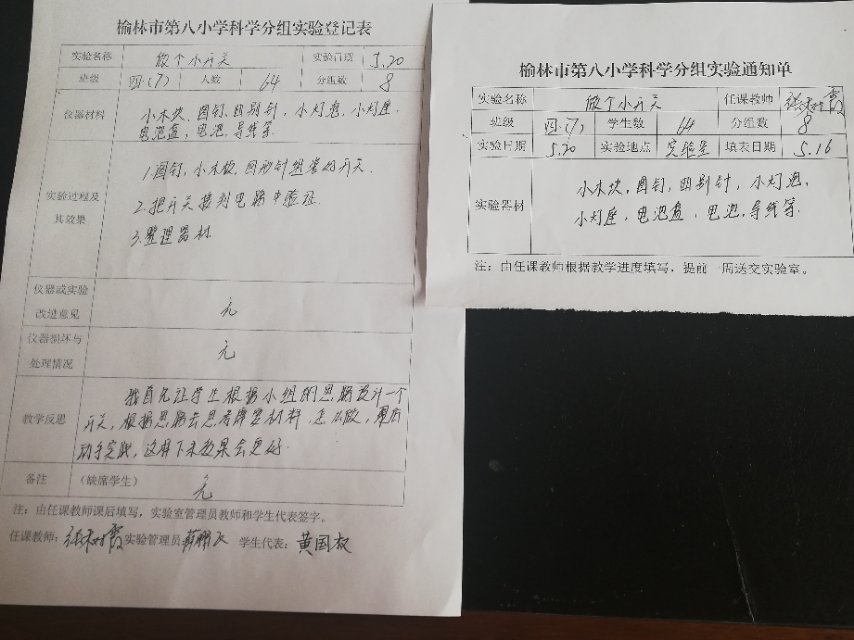 榆林市第八小学科学分组实验登记表
实验名称 做个小开关 实验日期 5.20
班级 四.(7) 人数 64 分组数 8
仪器材料 小木块、图钉、曲别针、小灯泡、小灯座、
电池盒、电池、导线等.
实验过程及
其效果
1.图钉、小木板、回形针组装好开关.
2.把开关接到电路中验证.
3.整理器材
仪器或实验
改进意见
无
仪器损坏与
处理情况
无
教学反思
我首先让学生根据小组的思路设计一个
开关,根据思路去思考需要材料,怎么做,最后
动手实践,这样下来效果会更好.
备注 (缺席学生) 无
注:由任课教师课后填写,实验室管理员教师和学生代表签字。
任课教师: 实验管理员 学生代表:黄国权
榆林市第八小学科学分组实验通知单
实验名称 做个小开关 任课教师
班级 四.(7) 学生数 64 分组数 8
实验日期 5.20 实验地点 实验室 填表日期 5.16
实验器材
小木块,图钉,曲别针,小灯泡,
小灯座,电池盒,电池,导线等.
注:由任课教师根据教学进度填写,提前一周送交实验室。